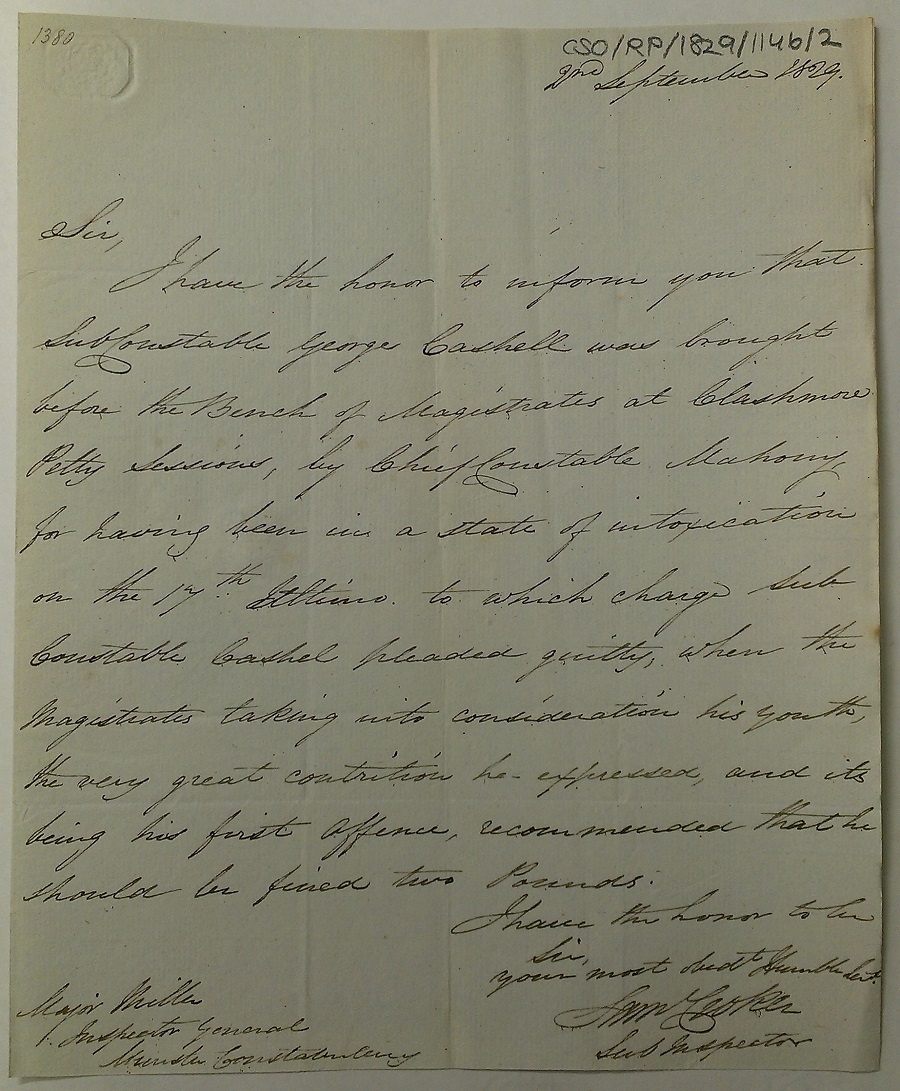 1380
CSO/RP/1829/1146/2
2nd September 1829.
Sir,
I have the honor to inform you that
SubConstable George Cashell was brought
before the Bench of Magistrates at Clashmore
Petty Sessions, by Chief Constable Mahony,
for having been in a state of intoxication
on the 17th Ultimo. to which charge Sub
Constable Cashel pleaded guilty, when the
Magistrates taking into consideration his youth,
the very great contrition he expressed, and its
being his first offence, recommended that he
should be fined two Pounds.
I have the honor to be
Sir,
your most obedt Humble Sert
Saml Croker
Sub Inspector
Major Miller
Inspector General
Munster Constabulary